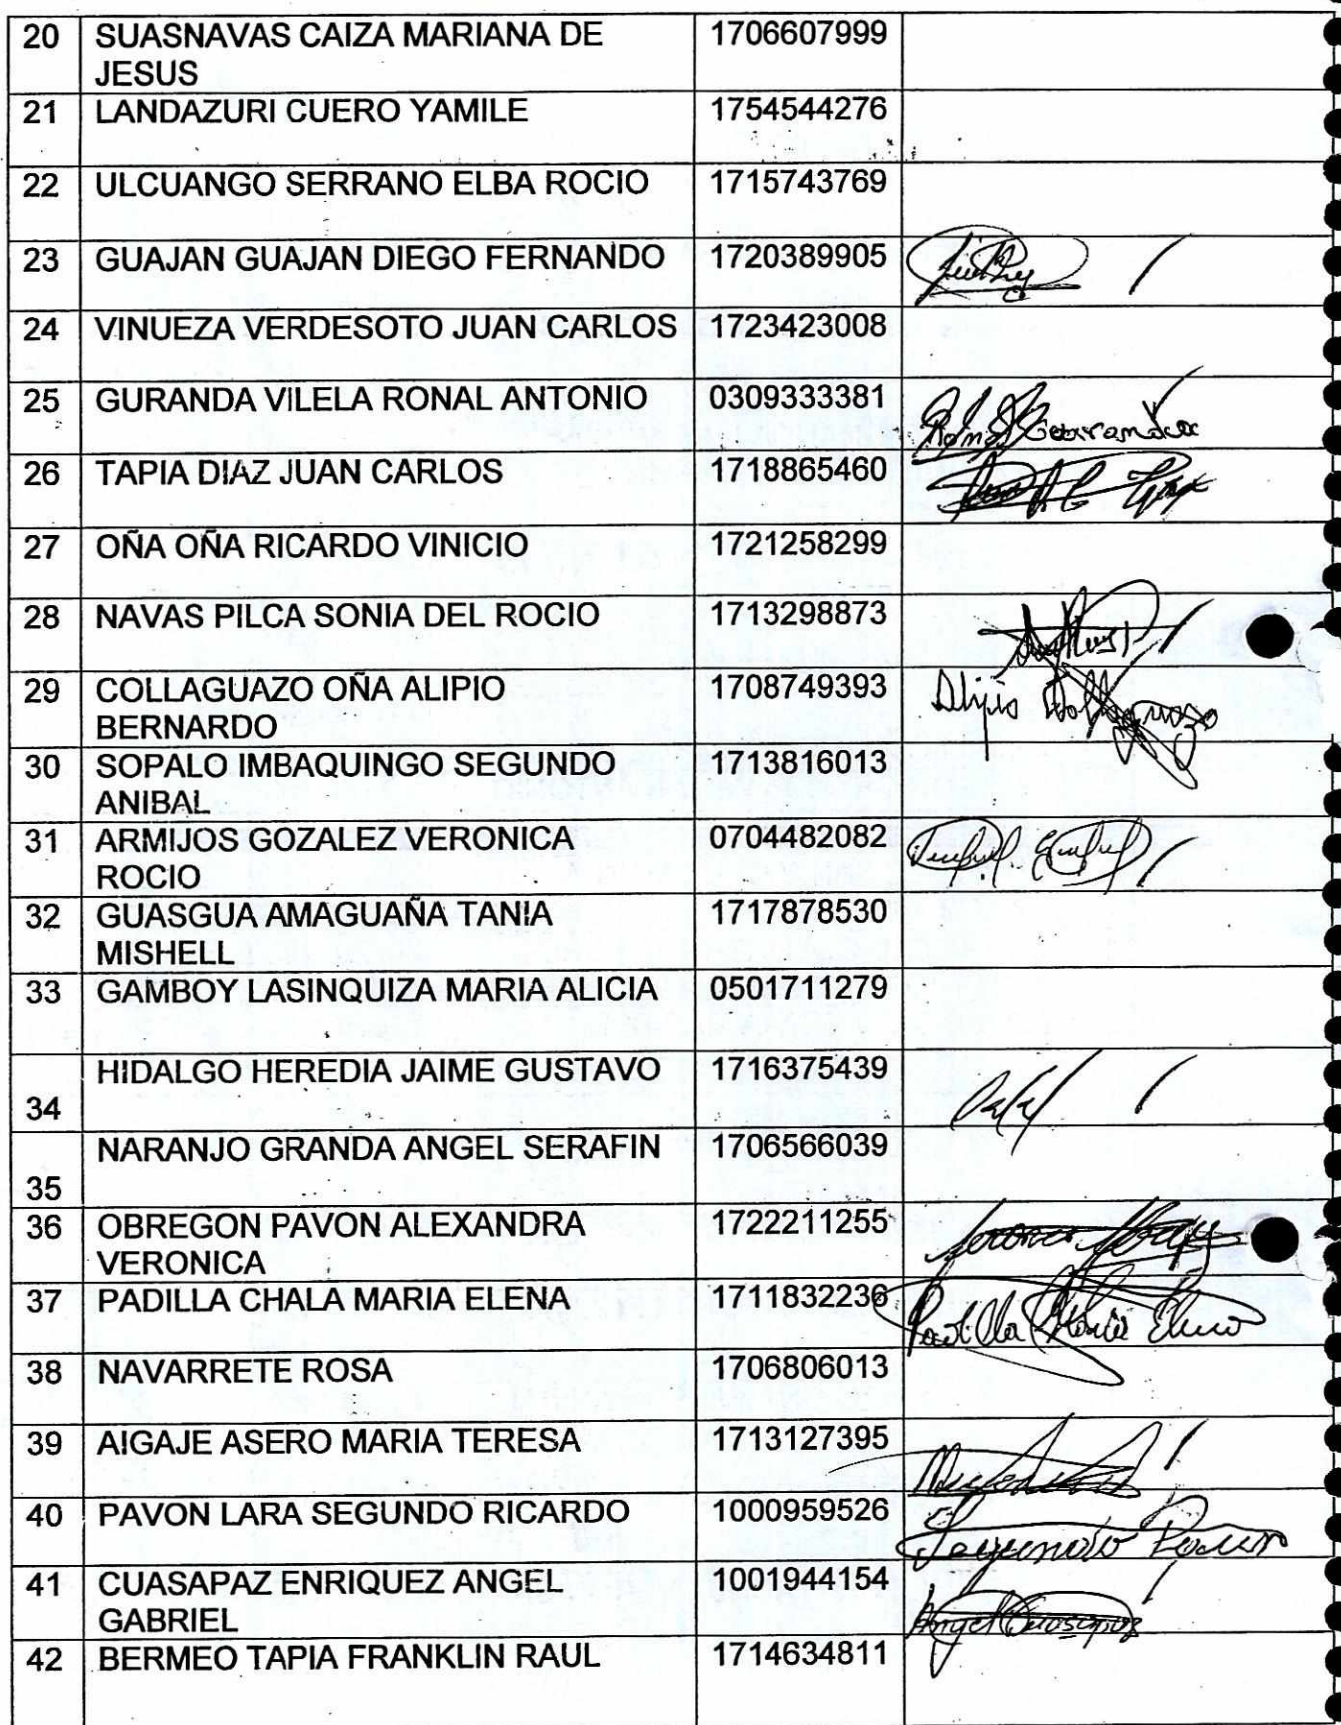 20 SUASNAVAS CAIZA MARIANA DE 1706607999
JESUS
21 LANDAZURI CUERO YAMILE 1754544276
22 ULCUANGO SERRANO ELBA ROCIO 1715743769
23 GUAJAN GUAJAN DIEGO FERNANDO 1720389905
24 VINUEZA VERDESOTO JUAN CARLOS 1723423008
25 GURANDA VILELA RONAL ANTONIO 0309333381
26 TAPIA DIAZ JUAN CARLOS 1718865460
27 OÑA OÑA RICARDO VINICIO 1721258299
28 NAVAS PILCA SONIA DEL ROCIO 1713298873
29 COLLAGUAZO OÑA ALIPIO 1708749393 Alipio
BERNARDO
30 SOPALO IMBAQUINGO SEGUNDO 1713816013
ANIBAL
31 ARMIJOS GOZALEZ VERONICA 0704482082
ROCIO
32 GUASGUA AMAGUAÑA TANIA 1717878530
MISHELL
33 GAMBOY LASINQUIZA MARIA ALICIA 0501711279
HIDALGO HEREDIA JAIME GUSTAVO 1716375439
34
NARANJO GRANDA ANGEL SERAFIN 1706566039
35
36 OBREGON PAVON ALEXANDRA 1722211255
VERONICA
37 PADILLA CHALA MARIA ELENA 1711832236 Padilla María Elena
38 NAVARRETE ROSA 1706806013
39 AIGAJE ASERO MARIA TERESA 1713127395
40 PAVON LARA SEGUNDO RICARDO 1000959526 Segundo Pavon
41 CUASAPAZ ENRIQUEZ ANGEL 1001944154 Angel Cuasapaz
GABRIEL
42 BERMEO TAPIA FRANKLIN RAUL 1714634811